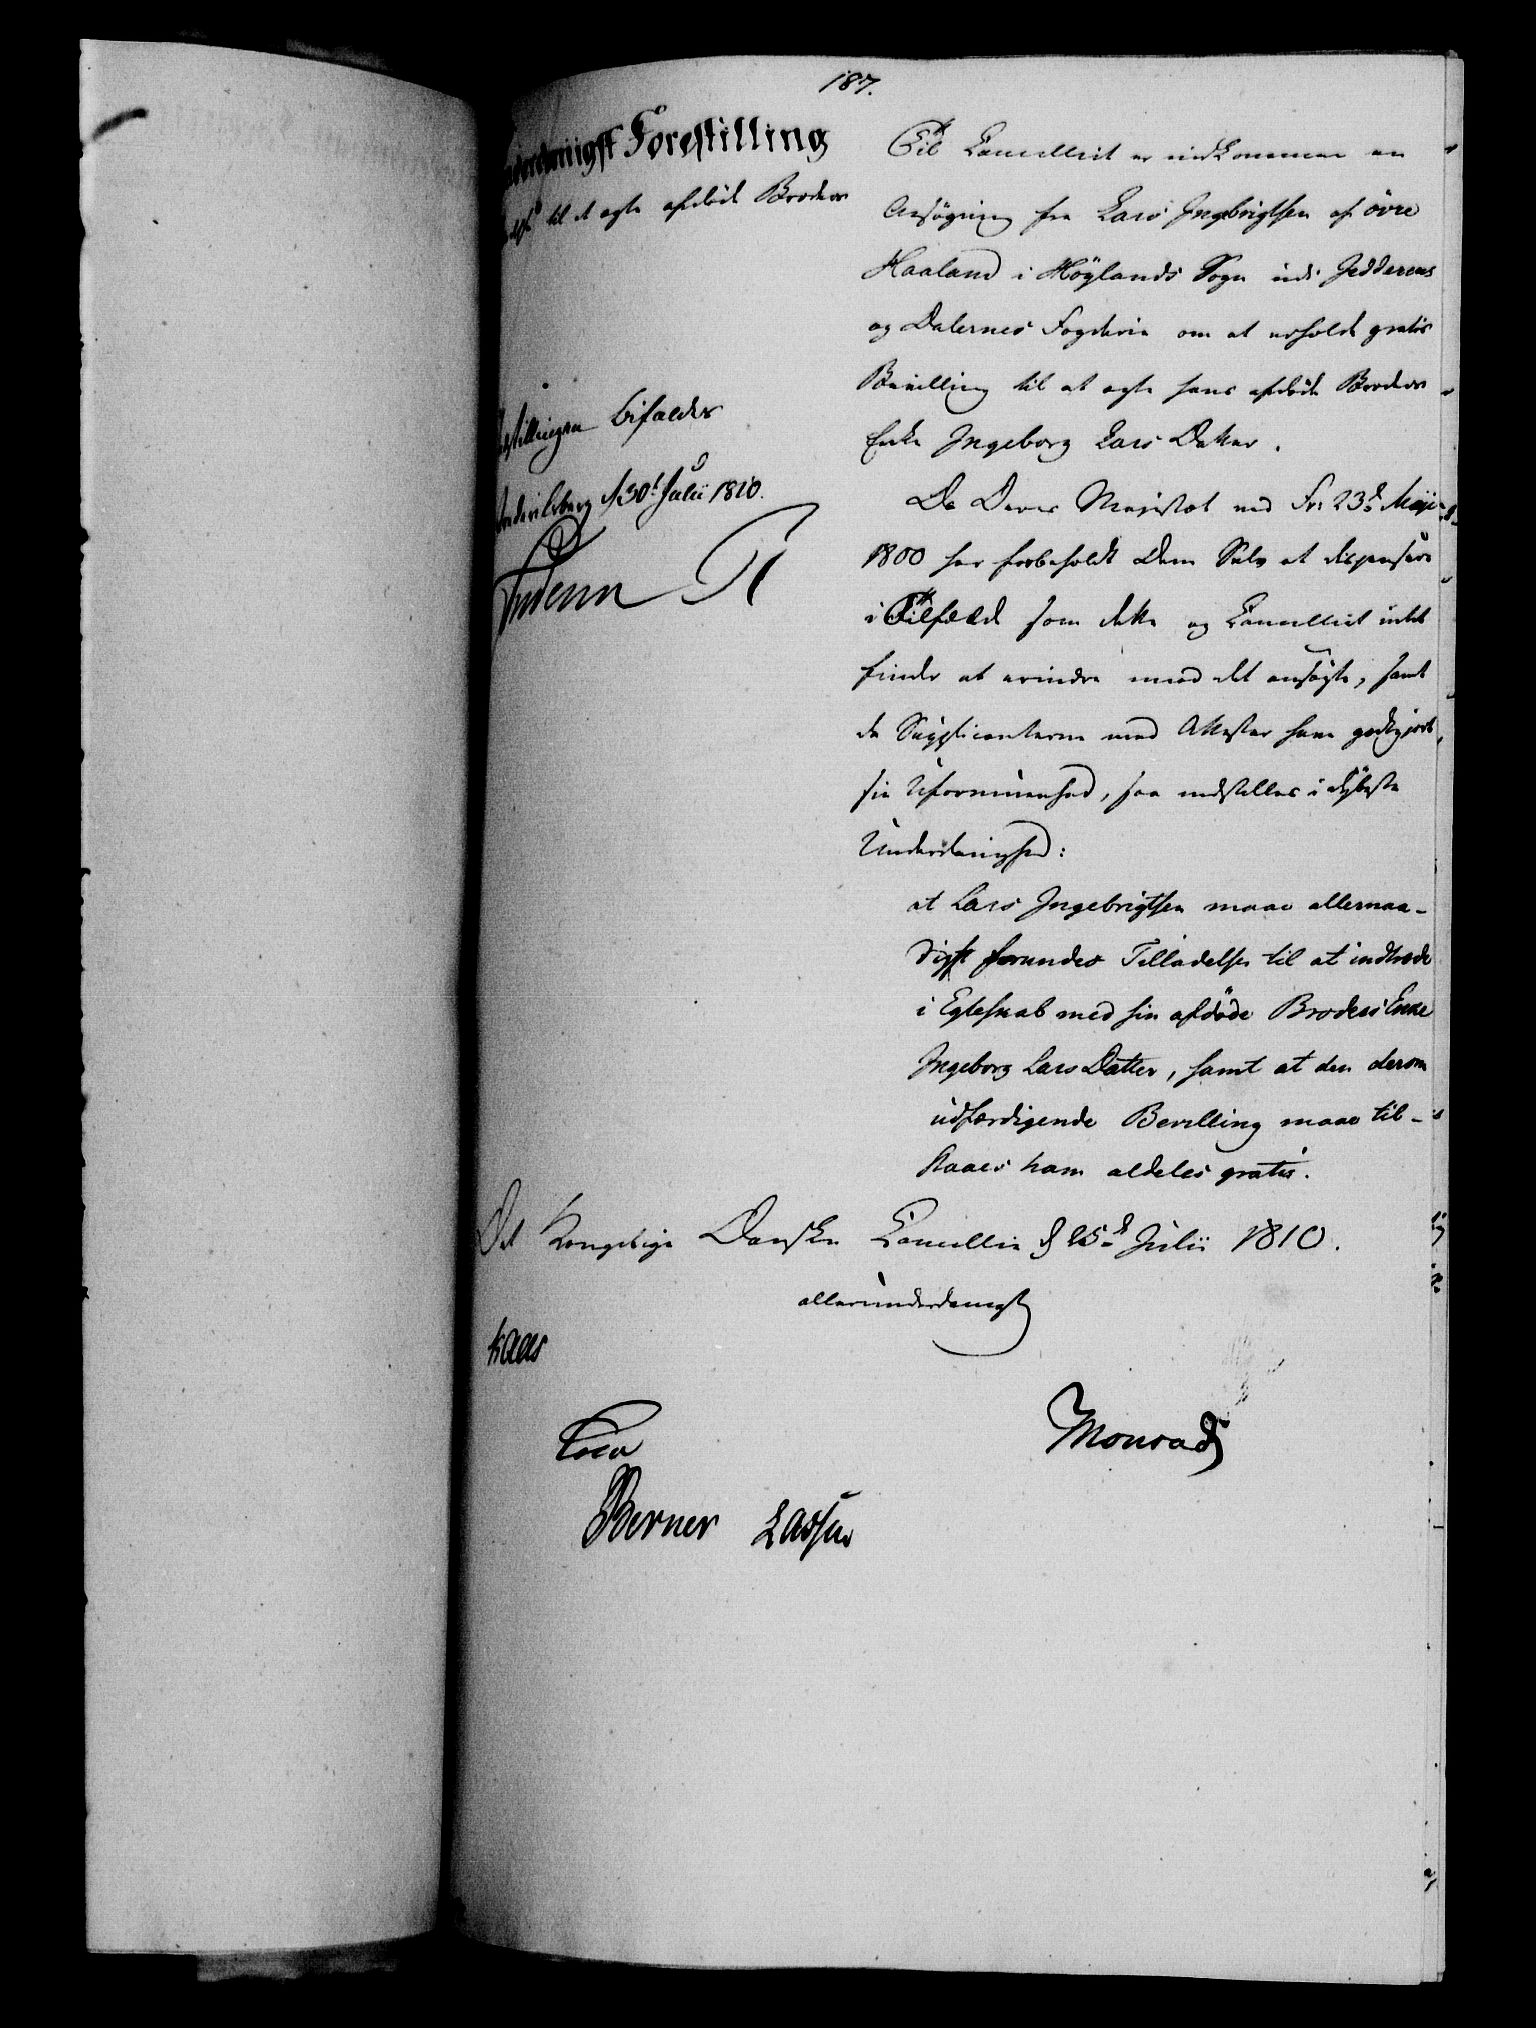 187.
Forestilling
til at ægte afdøde Broders
bifaldes
30te Julii 1810.
Frideric R
Til Cancelliet er indkommen en
Ansøgning fra Lars Ingebrigtsen af øvre
Haaland i Høylands Sogn udi Jedderens
og Dalernes Fogderie om at erholde gratis
Bevilling til at ægte hans afdøde Broders
Enke Ingeborg Lars Datter.
Da Deres Majestæt ved Fr: 23de Maji
1800 har forbeholdt Dem Selv at dispensere
i Tilfælde som dette og Cancelliet intet
finder at erindre mod det ansøgte, samt
da Supplicanterne med Attester have godtgjort
sin Uformuenhed, saa indstilles i dybeste
Underdanighed:
at Lars Ingebrigtsen maae allernaa-
digst forundes Tilladelse til at indtræde
i Egteskab med sin afdøde Broders Enke
Ingeborg Lars Datter, samt at den derom
udfærdigende Bevilling maae til-
staaes ham aldeles gratis.
Det Kongelige Danske Cancellie d 25de Julii 1810.
allerunderdanigst
Kaas
Monrad
Berner Lassen